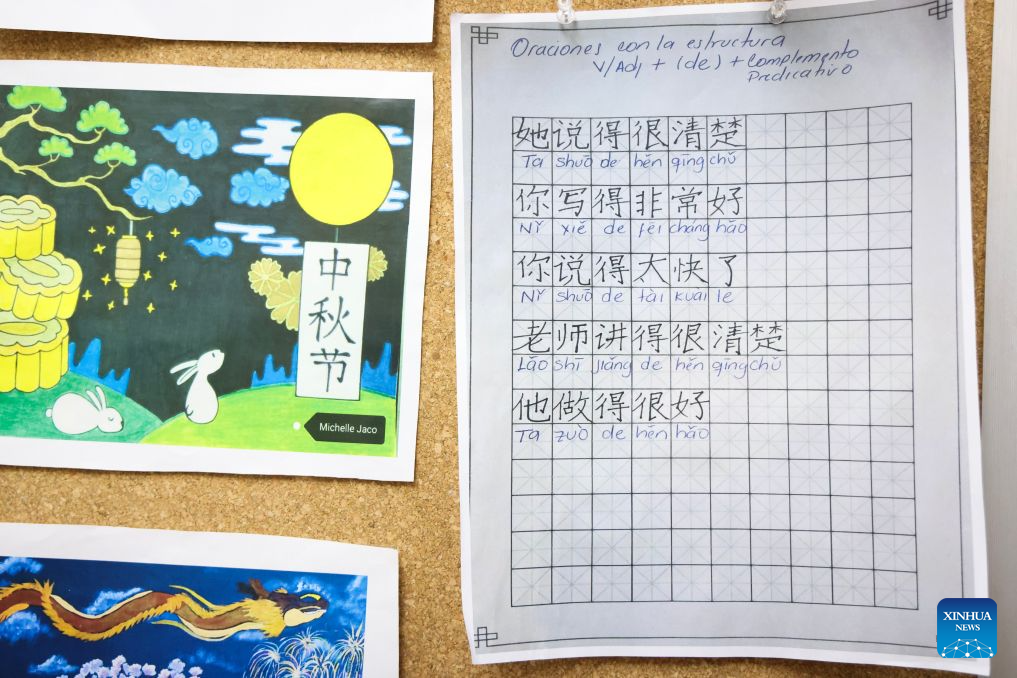 中
秋
节
Michelle Jaco
Oraciones con la estructura
V/Adj + (de) + Complemento
Predicativo
她说得很清楚
Tā shuō de hěn qīng chǔ
你写得非常好
Nǐ xiě de fēi cháng hǎo
你说得太快了
Nǐ shuō de tài kuài le
老师讲得很清楚
Lǎo shī jiǎng de hěn qīng chǔ
他做得很好
Tā zuò de hěn hǎo
XINHUA
NEWS